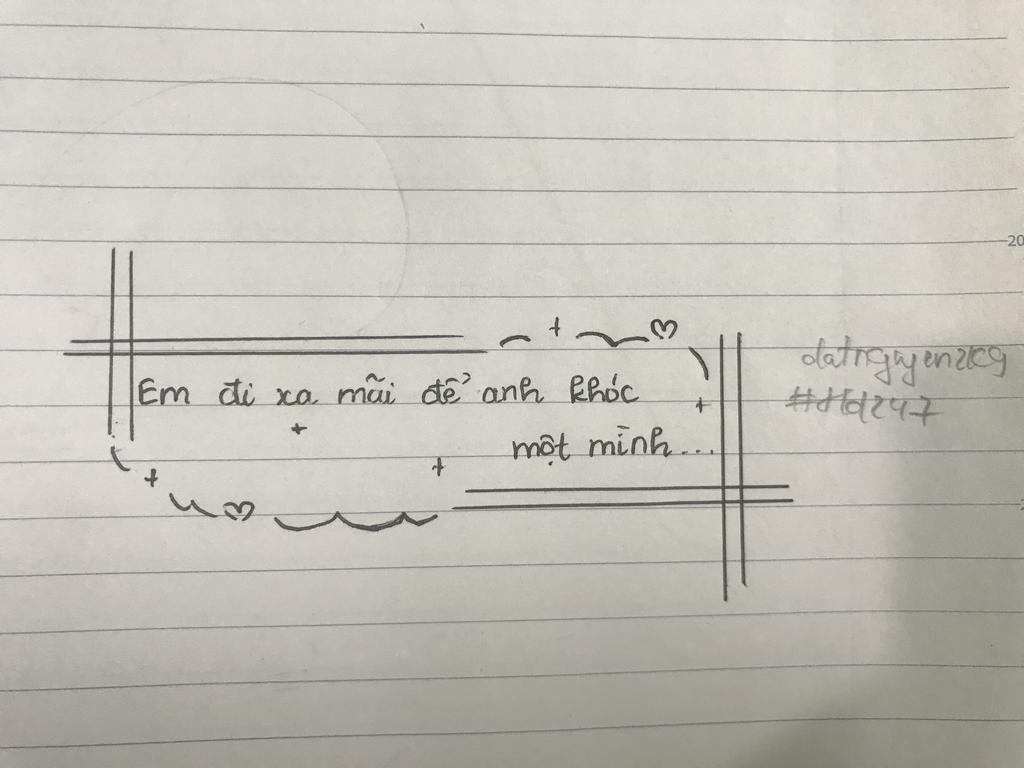 Em đi xa mãi để anh khóc
một mình...
20